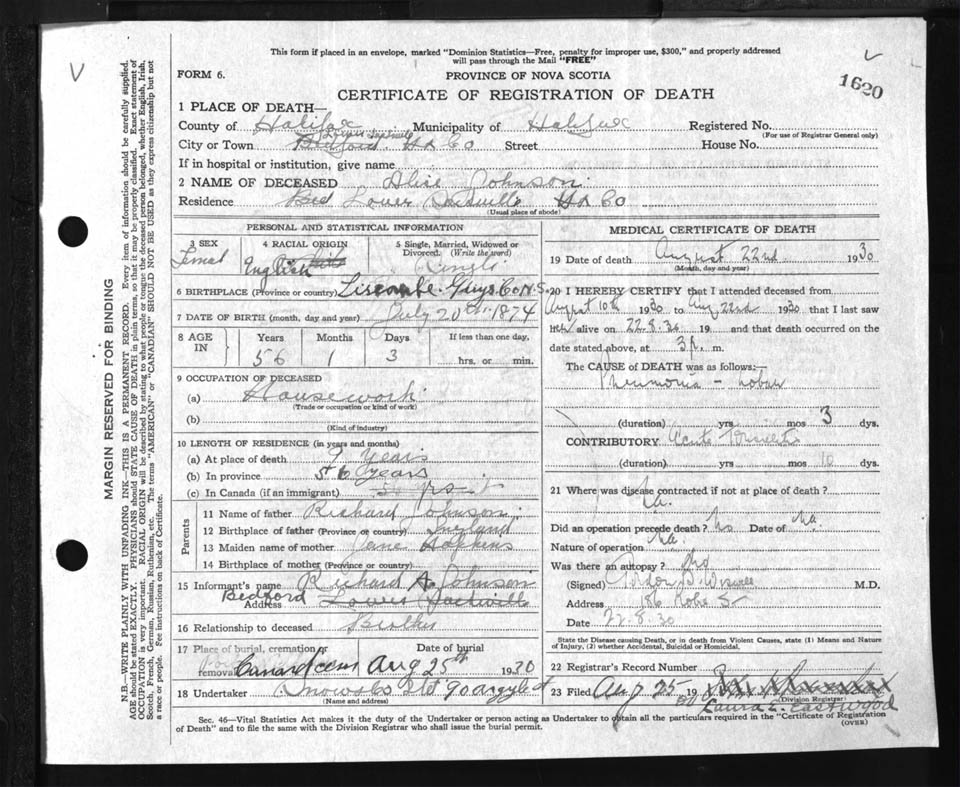 This form if placed in an envelope, marked "Dominion Statistics—Free, penalty for improper use, $300," and properly addressed
will pass through the Mail "FREE"
V
V
1620
FORM 6.
PROVINCE OF NOVA SCOTIA
CERTIFICATE OF REGISTRATION OF DEATH
MARGIN RESERVED FOR BINDING
N.B.—WRITE PLAINLY WITH UNFADING INK—THIS IS A PERMANENT RECORD. Every item of information should be carefully supplied.
AGE should be stated EXACTLY. PHYSICIANS should STATE CAUSE OF DEATH in plain terms, so that it may be properly classified. Exact statement of
OCCUPATION is very important. RACIAL ORIGIN will be described by stating to what people or tongue the deceased person belonged, whether English, Irish,
Scotch, French, German, Russian, Ruthenian, etc. The terms "AMERICAN" or "CANADIAN" SHOULD NOT BE USED as they express citizenship but not
a race or people. Fee instructions on back of Certificate.
1 PLACE OF DEATH—
County of Halifax Municipality of Halifax Registered No.
(For use of Registrar General only)
Lower Sackville
City or Town Bedford Hx Co Street House No.
If in hospital or institution, give name
2 NAME OF DECEASED Alice Johnson
Residence Lower Sackville Hx Co
(Usual place of abode)
PERSONAL AND STATISTICAL INFORMATION
3 SEX 4 RACIAL ORIGIN 5 Single, Married, Widowed or
Divorced. (Write the word)
Femal English Single
6 BIRTHPLACE (Province or country) Liscombe Guys Co N.S.
7 DATE OF BIRTH (month, day and year) July 20th 1874
8 AGE IN Years Months Days If less than one day,
56 1 3 hrs. or min.
9 OCCUPATION OF DECEASED
(a) Housework
(Trade or occupation or kind of work)
(b)
(Kind of industry)
10 LENGTH OF RESIDENCE (in years and months)
(a) At place of death 9 years
(b) In province 56 years
(c) In Canada (if an immigrant) yrs
Parents
11 Name of father Richard Johnson
12 Birthplace of father (Province or country) England
13 Maiden name of mother Jane Hopkins
14 Birthplace of mother (Province or country)
15 Informant's name Richard A. Johnson
Bedford
Address Lower Sackville
16 Relationship to deceased Brother
17 Place of burial, cremation or Date of burial
removal Aug 25th 1930
18 Undertaker Snows Co Ltd 90 Argyle st
(Name and address)
MEDICAL CERTIFICATE OF DEATH
19 Date of death August 22nd 1930
(Month, day and year)
20 I HEREBY CERTIFY that I attended deceased from
August 10th 1930 to Aug 22nd 1930 that I last saw
alive on 22.8.30 19 and that death occurred on
date stated above, at 3 m.
The CAUSE of DEATH was as follows:—
Pneumonia – Lobar
(duration) yrs mos 3 dys.
CONTRIBUTORY Acute
(duration) yrs mos 10 dys.
21 Where was disease contracted if not at place of death?
Did an operation precede death? No Date of Na.
Nature of operation Na.
Was there an autopsy? No
(Signed) M.D.
Address 186 Robie St
Date 22.8.30
State the Disease causing Death, or in death from Violent Causes, state (1) Means and Nature
of Injury, (2) whether Accidental, Suicidal or Homicidal.
22 Registrar's Record Number
23 Filed Aug 25 19
(Division Registrar)
Laura E. Eastwood
Sec. 46—Vital Statistics Act makes it the duty of the Undertaker or person acting as Undertaker to obtain all the particulars required in the "Certificate of Registration
of Death" and to file the same with the Division Registrar who shall issue the burial permit.
(OVER)